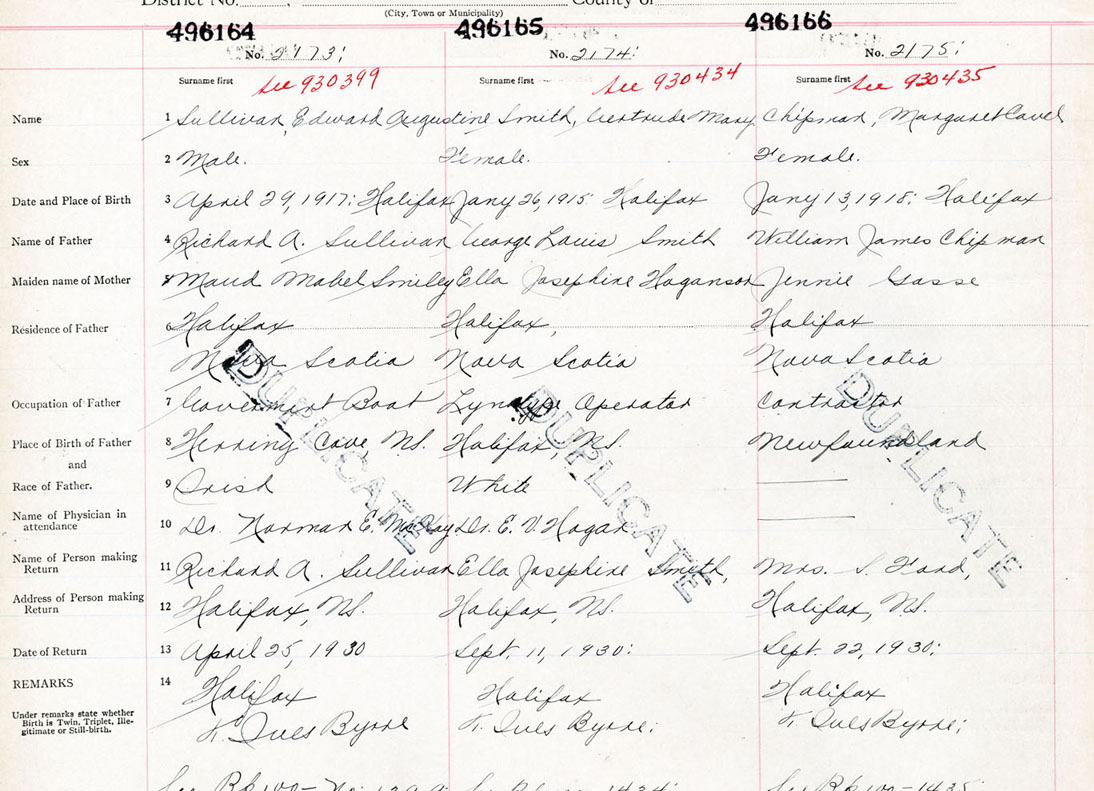 District No. County of
(City, Town or Municipality)
496164 496165 496166
No. 2173; No. 2174; No. 2175;
Surname first Surname first Surname first
See 930399 See 930434 See 930435
Name 1 Sullivan, Edward Augustine Smith, Gertrude Mary Chipman, Margaret Cavel
Sex 2 Male. Female. Female.
Date and Place of Birth 3 April 29, 1917: Halifax Jany 26, 1915: Halifax Jany 13, 1918: Halifax
Name of Father 4 Richard A. Sullivan George Louis Smith William James Chipman
Maiden name of Mother 5 Maud Mabel Smiley Ella Josephine Hoganson Jennie Gasse
Residence of Father 6 Halifax Halifax, Halifax
Nova Scotia Nova Scotia Nova Scotia
Occupation of Father 7 Government Boat Lynotype Operator Contractor
Place of Birth of Father 8 Herring Cove, N.S. Halifax, N.S. Newfoundland
and
Race of Father. 9 Irish White
Name of Physician in
attendance 10 Dr. Norman E. McKay Dr. E. V. Hogan
Name of Person making
Return 11 Richard A. Sullivan Ella Josephine Smith, Mrs. S. Ford,
Address of Person making
Return 12 Halifax, N.S. Halifax, N.S. Halifax, N.S.
Date of Return 13 April 25, 1930 Sept. 11, 1930: Sept. 22, 1930:
REMARKS 14 Halifax Halifax Halifax
Under remarks state whether
Birth is Twin, Triplet, Ille-
gitimate or Still-birth.
Byrne Byrne; Byrne;
DUPLICATE DUPLICATE DUPLICATE